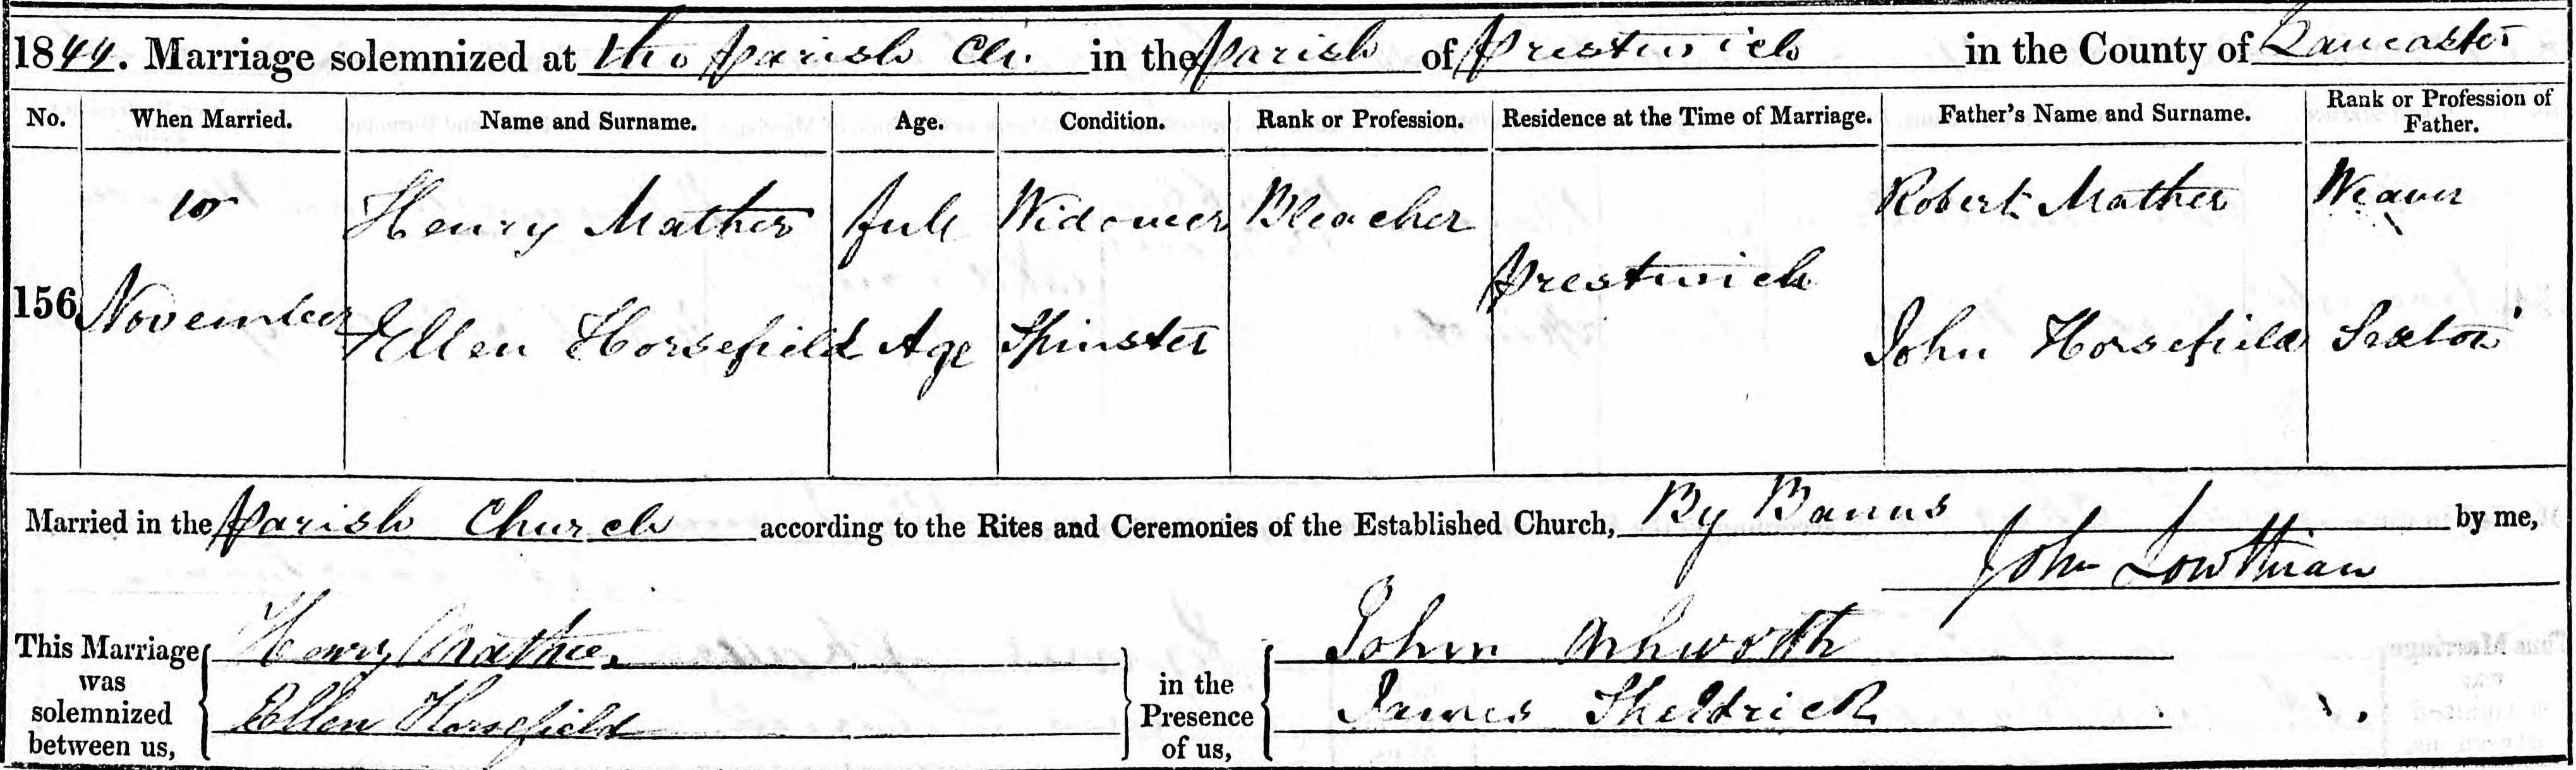 1844. Marriage solemnized at the Parish Ch. in the Parish of Prestwich in the County of Lancaster
No. When Married. Name and Surname. Age. Condition. Rank or Profession. Residence at the Time of Marriage. Father's Name and Surname. Rank or Profession of Father.
Henry Mather full Widower Bleacher Robert Mather Weaver
Prestwich
156 November Ellen Horsefield Age Spinster John Horsefield Sexton
Married in the Parish Church according to the Rites and Ceremonies of the Established Church, By Banns by me,
John Lowthian
This Marriage was solemnized between us, Henry Mather Ellen Horsefield in the Presence of us, John Ashworth James Sheldrick